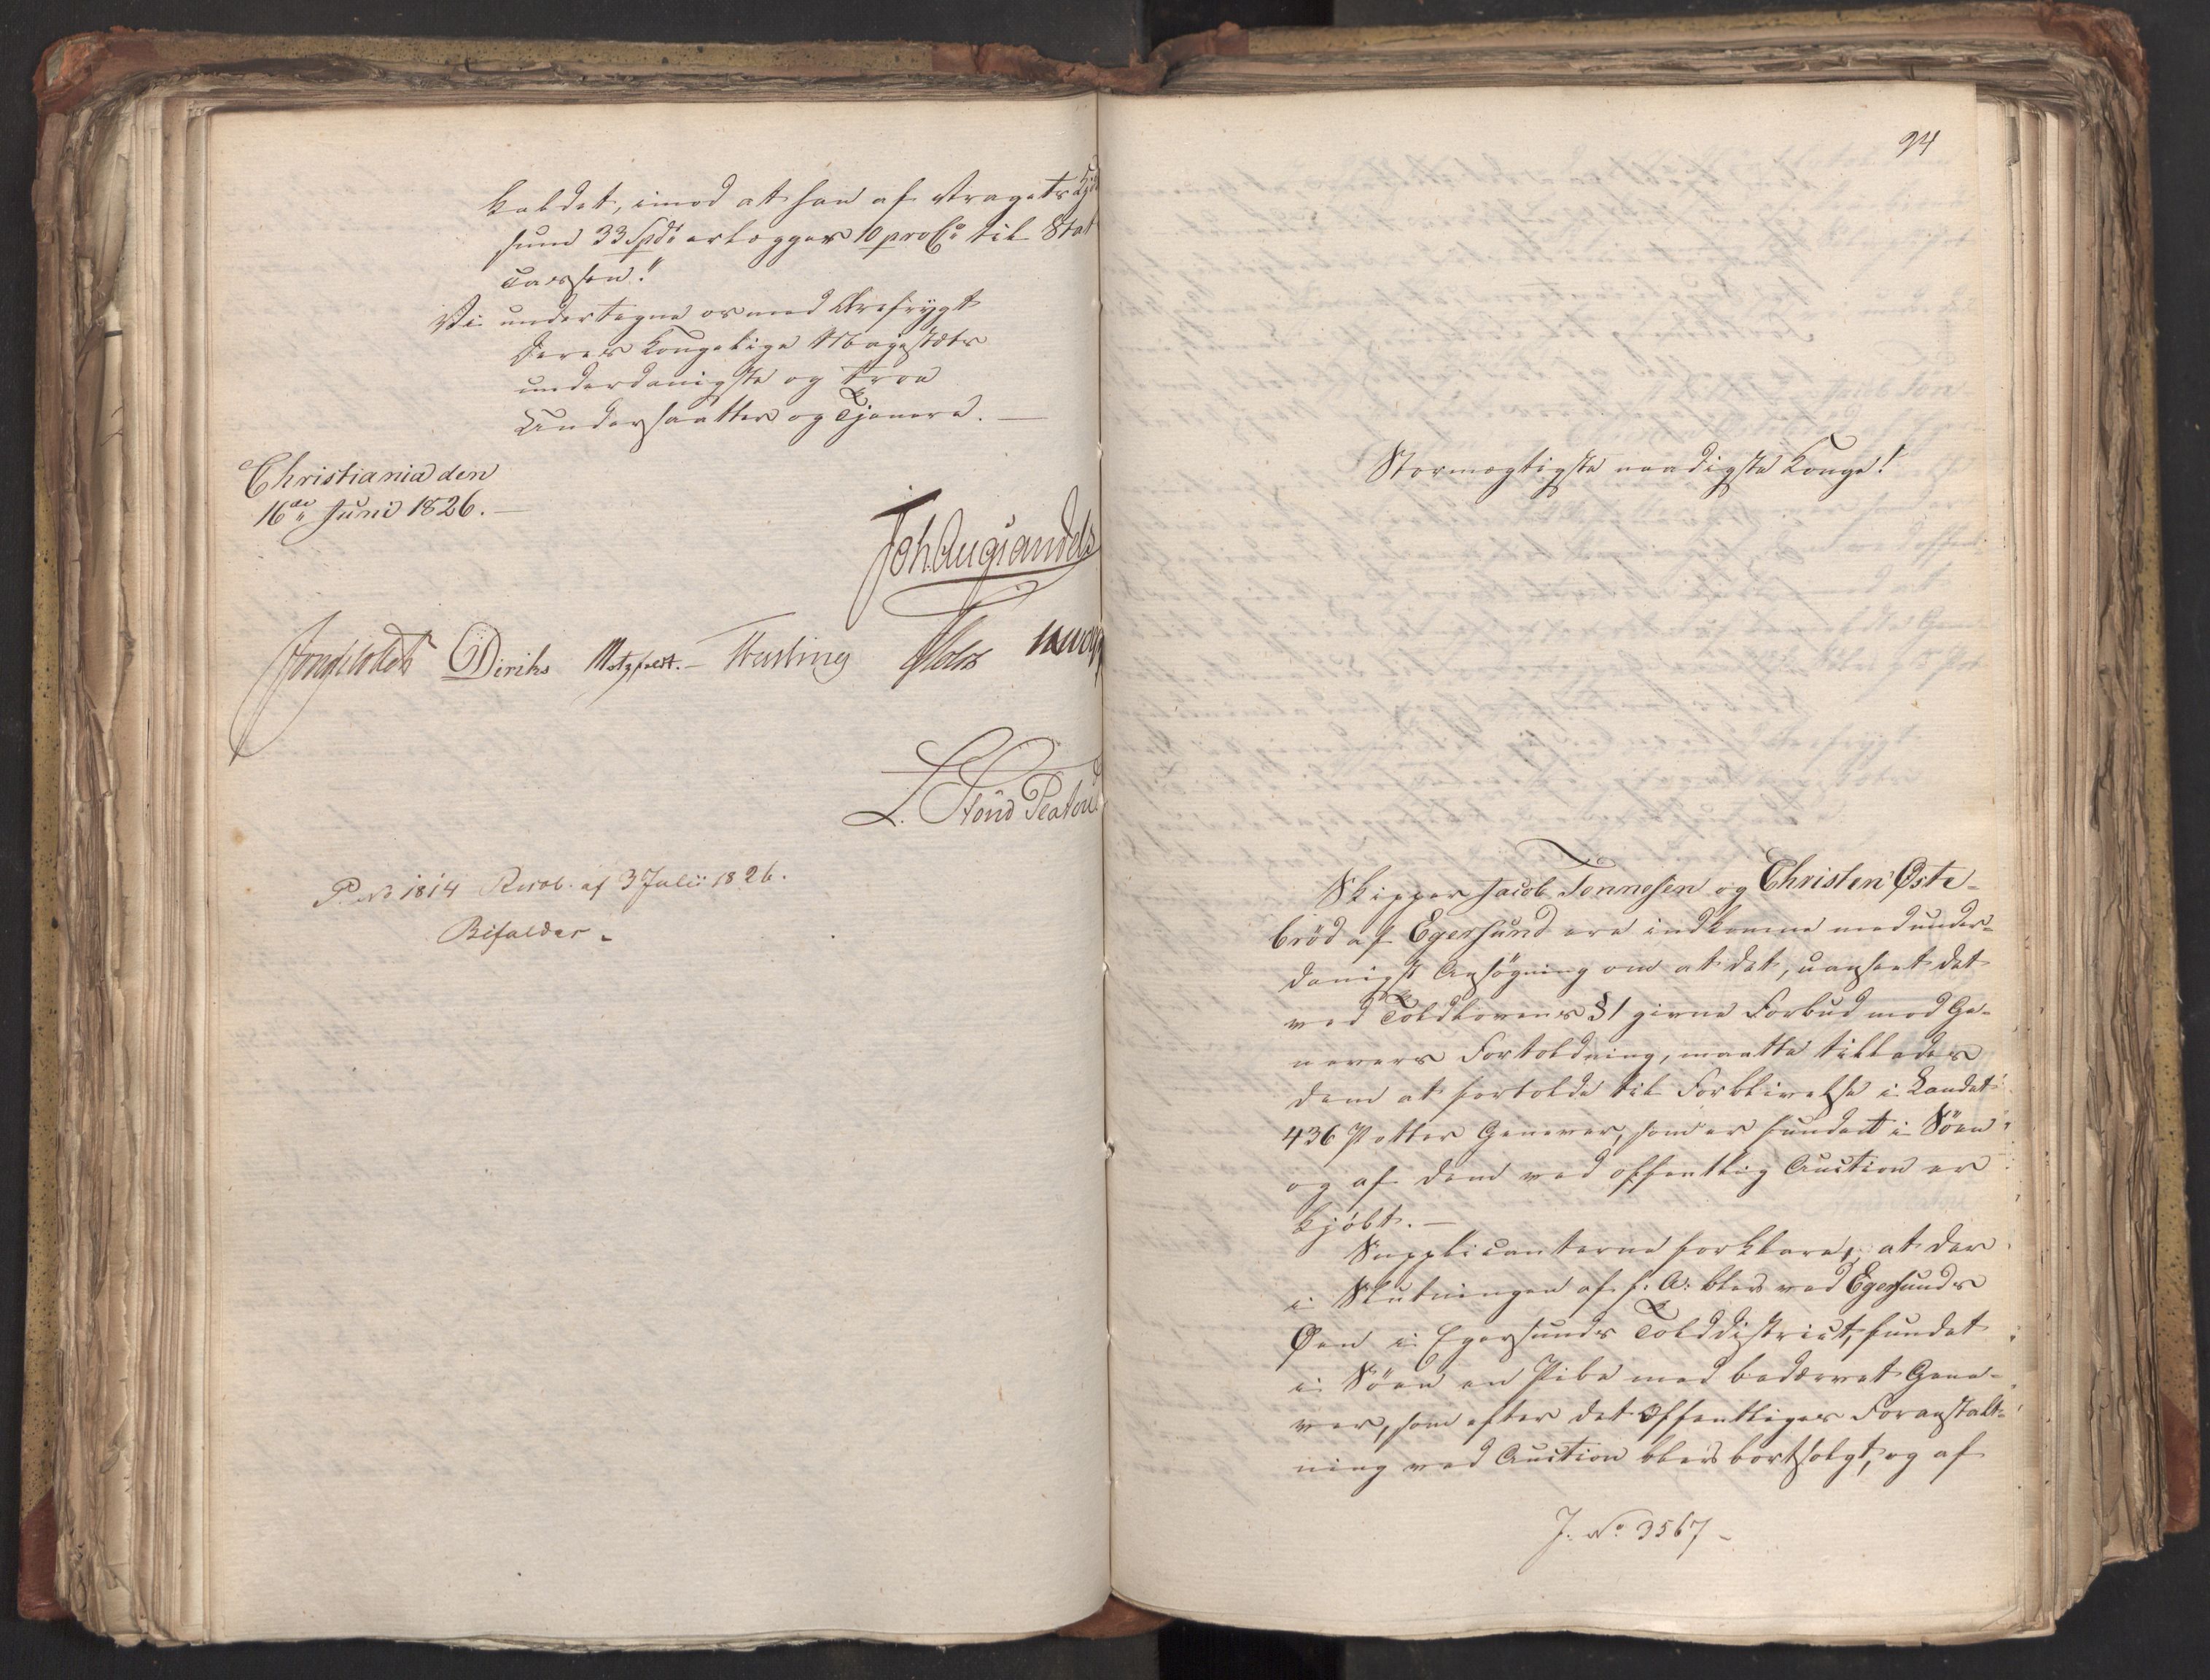 kaldet, imod at han af Vragets
sum 33 Spd erlægger 10 pro Ct til Stat
Cassen."
Vi undertegne os med Ærefrygt
Deres Kongelige Majestæts
underdanigste og troe
Undersaatter og Tjenere. —
Christiania den
16de Juni 1826. —
Joh. Aug. Sandels
Diriks Motzfeldt. — Fasting Holst
L. Fönss Platou
P. No 1814 Resol. af 3 Julii 1826.
Bifaldes.
94
Stormægtigste naadigste Konge!
Skipper Jacob Tonnesen og Christen Øste-
bröd af Egersund ere indkomne med under-
danigst Ansögning om at det, uanseet det
ved Toldlovens § 1 givne Forbud mod Ge-
nevers Fortoldning, maatte tillades
dem at fortolde til Forblivelse i Landet
436 Potter Genever, som er fundet i Söen
og af dem ved offentlig Auction er
kjöbt. —
Supplicanterne forklare, at der
i Slutningen af f. A. blev ved Egersunds
Øen i Egersunds Tolddistrict, fundet
i Söen en Pibe med bedærvet Gene-
ver, som efter det Offentliges Foranstalt-
ning ved Auction blev bortsolgt, og af
J. No 3567 -